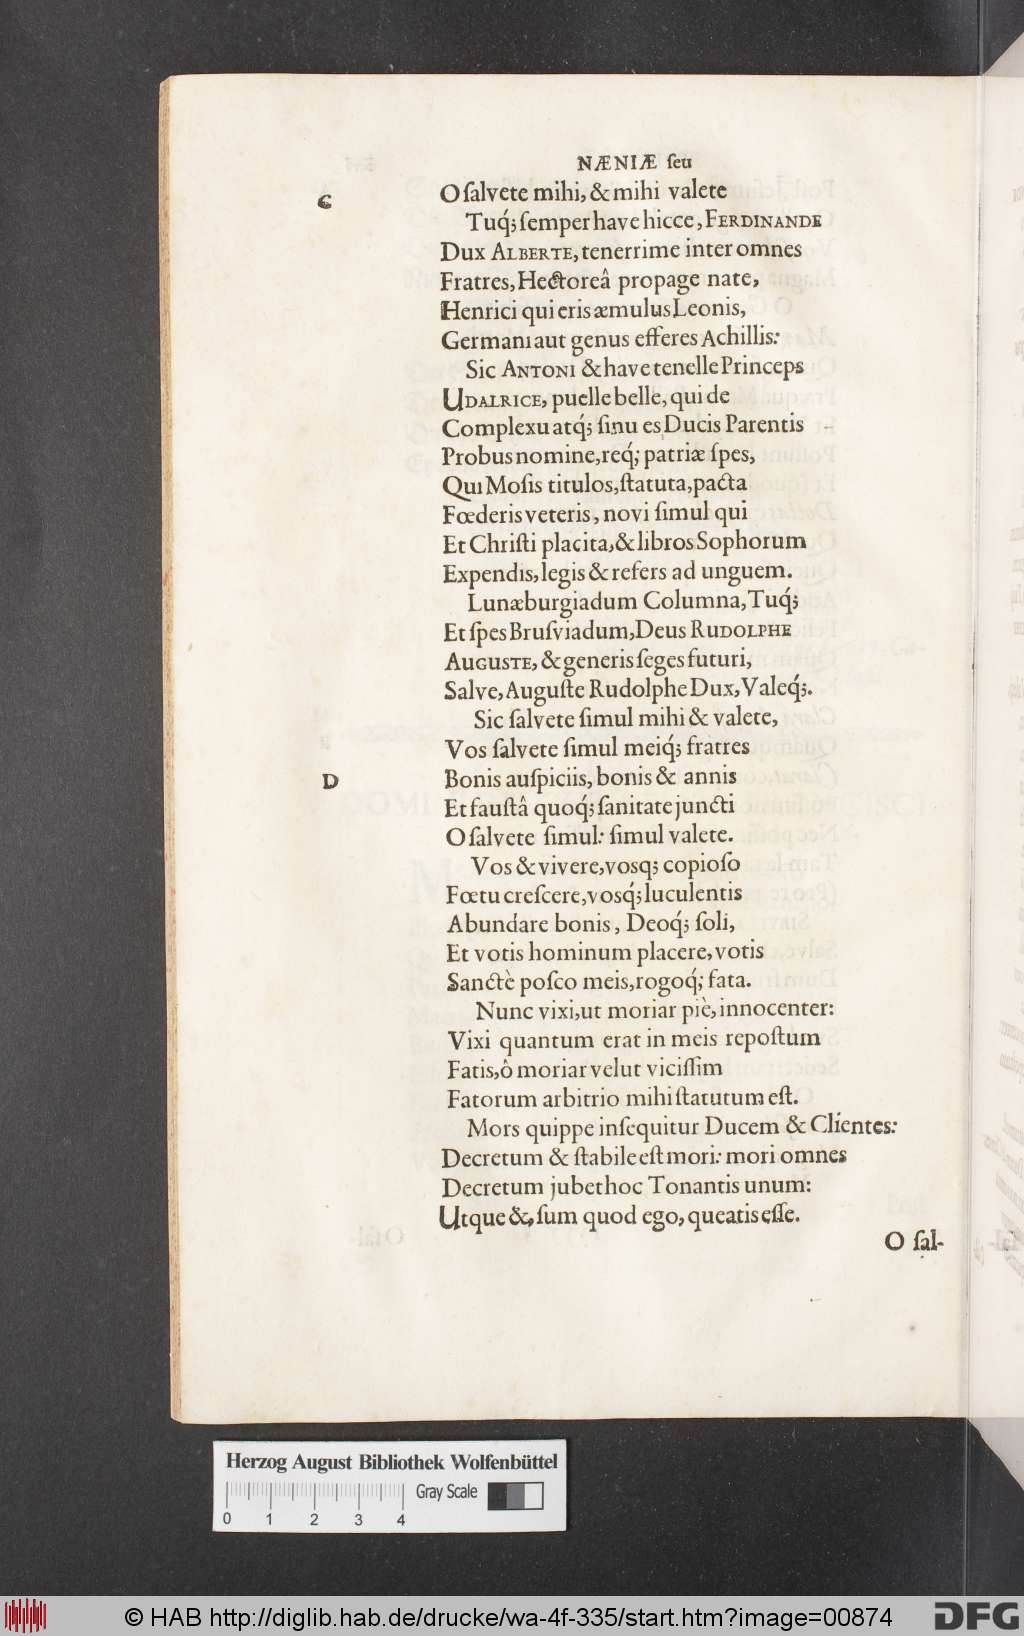 NÆNIÆ ſeu
C
O ſalvete mihi, & mihi valete
Tuq́; ſemper have hicce, FERDINANDE
Dux ALBERTE, tenerrime inter omnes
Fratres, Hectoreâ propage nate,
Henrici qui eris æmulus Leonis,
Germani aut genus efferes Achillis:
Sic ANTONI & have tenelle Princeps
UDALRICE, puelle belle, qui de
Complexu atq́; ſinu es Ducis Parentis
Probus nomine, req́; patriæ ſpes,
Qui Moſis titulos, ſtatuta, pacta
Fœderis veteris, novi ſimul qui
Et Chriſti placita, & libros Sophorum
Expendis, legis & refers ad unguem.
Lunæburgiadum Columna, Tuq́;
Et ſpes Bruſviadum, Deus RUDOLPHE
AUGUSTE, & generis ſeges futuri,
Salve, Auguſte Rudolphe Dux, Valeq́;.
Sic ſalvete ſimul mihi & valete,
Vos ſalvete ſimul meiq́; fratres
D
Bonis auſpiciis, bonis & annis
Et fauſtâ quoq́; ſanitate juncti
O ſalvete ſimul: ſimul valete.
Vos & vivere, vosq; copioſo
Fœtu creſcere, vosq́; luculentis
Abundare bonis, Deoq́; ſoli,
Et votis hominum placere, votis
Sanctè poſco meis, rogoq́; fata.
Nunc vixi, ut moriar piè, innocenter:
Vixi quantum erat in meis repoſtum
Fatis, ô moriar velut viciſſim
Fatorum arbitrio mihi ſtatutum eſt.
Mors quippe inſequitur Ducem & Clientes:
Decretum & ſtabile eſt mori: mori omnes
Decretum jubet hoc Tonantis unum:
Utque &, ſum quod ego, queatis eſſe.
O ſal-
Herzog August Bibliothek Wolfenbüttel
Gray Scale
0 1 2 3 4
© HAB http://diglib.hab.de/drucke/wa-4f-335/start.htm?image=00874
DFG